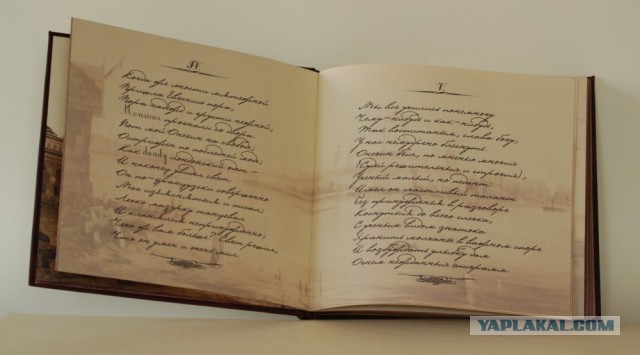 IV.
Когда же юности мятежной
Пришла Евгению пора,
Пора надежд и грусти нежной,
Monsieur прогнали со двора.
Вот мой Онегин на свободе;
Острижен по последней моде,
Как dandy лондонский одет —
И наконец увидел свет.
Он по-французски совершенно
Мог изъясняться и писал;
Легко мазурку танцевал
И кланялся непринужденно;
Чего ж вам больше? Свет решил,
Что он умен и очень мил.
V.
Мы все учились понемногу
Чему-нибудь и как-нибудь,
Так воспитаньем, слава богу,
У нас немудрено блеснуть.
Онегин был, по мненью многих
(Судей решительных и строгих),
Ученый малый, но педант.
Имел он счастливый талант
Без принужденья в разговоре
Коснуться до всего слегка,
С ученым видом знатока
Хранить молчанье в важном споре
И возбуждать улыбку дам
Огнем нежданных эпиграмм.
YAPLAKAL.COM